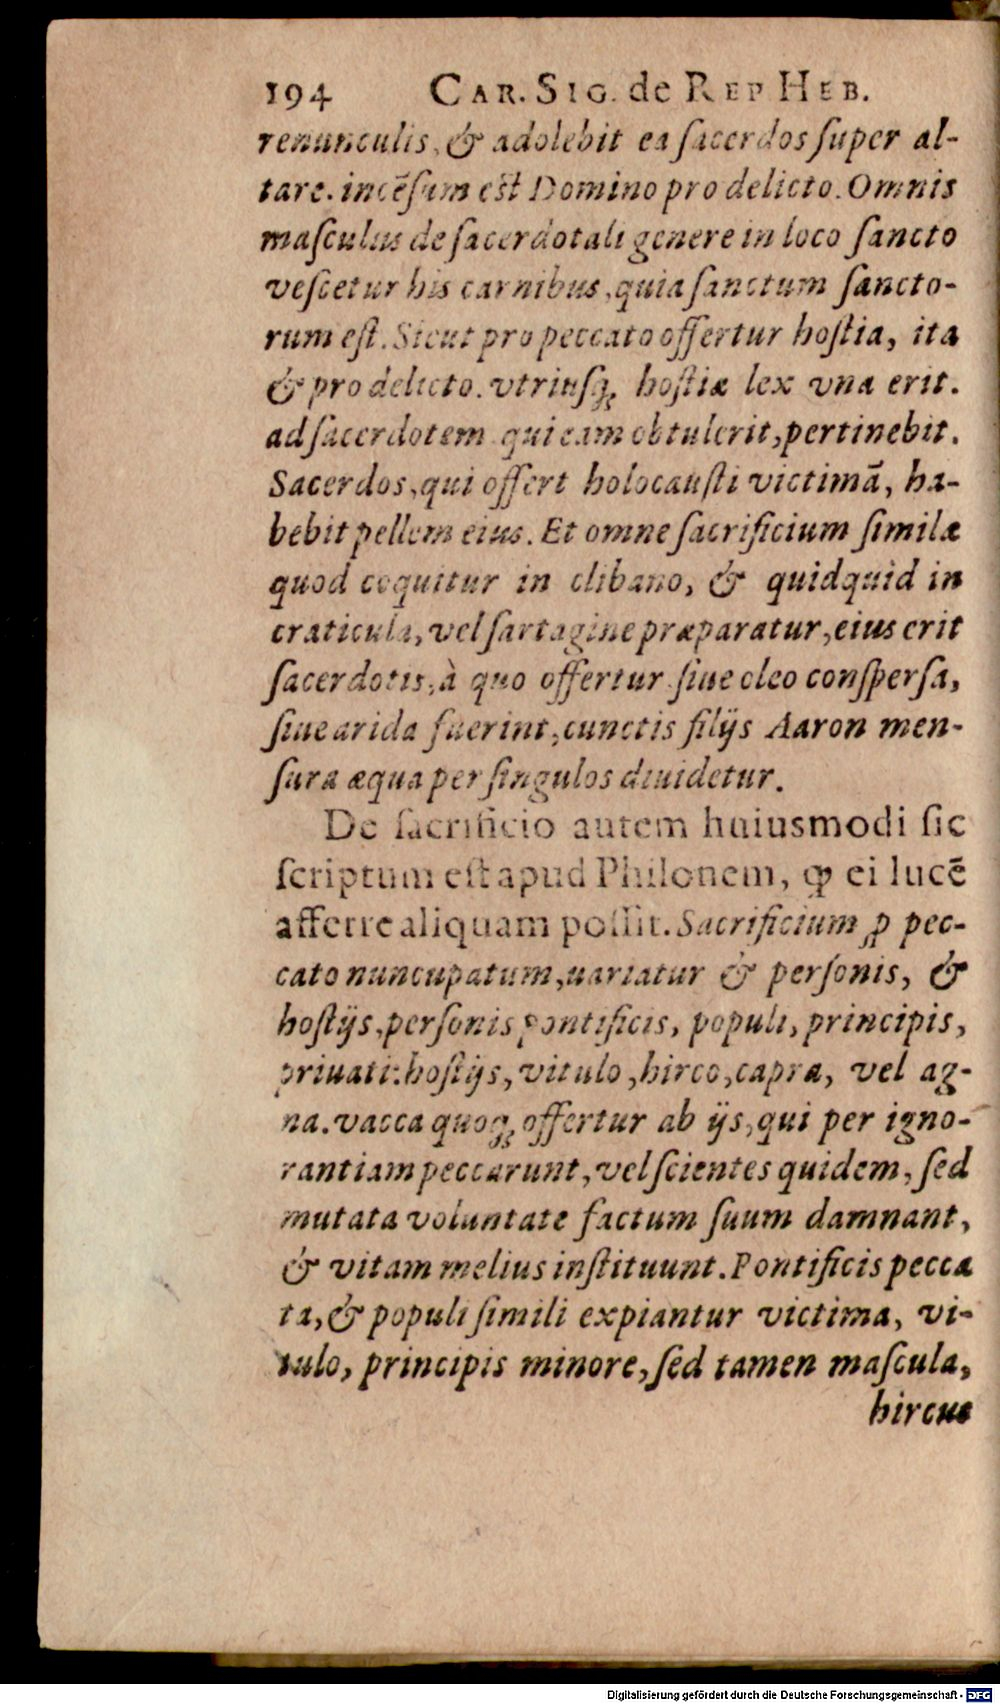 194 CAR. SIG. de REP HEB.
renunculis, & adolebit ea ſacerdos ſuper al-
tare. incēſum est Domino pro delicto. Omnis
maſculus de ſacerdotali genere in loco ſancto
veſcetur his carnibus, quia ſanctum ſancto-
rum eſt. Sicut pro peccato offertur hoſtia, ita
& pro delicto. vtriuſq; hoſtiæ lex vna erit.
ad ſacerdotem qui eam obtulerit, pertinebit.
Sacerdos, qui offert holocauſti victimā, ha-
bebit pellem eius. Et omne ſacrificium ſimilæ
quod coquitur in clibano, & quidquid in
craticula, vel ſartagine præparatur, eius erit
ſacerdotis, à quo offertur ſiue oleo conſperſa,
ſiue arida fuerint, cunctis filijs Aaron men-
ſura æqua per ſingulos diuidetur.
De ſacrificio autem huiusmodi ſic
ſcriptum eſt apud Philonem, ꝙ ei lucē
afferre aliquam poſſit. Sacrificium ꝓ pec-
cato nuncupatum, uariatur & perſonis, &
hoſtijs, perſonis pontificis, populi, principis,
priuati: hoſtijs, vitulo, hirco, capra, vel ag-
na. vacca quoq; offertur ab ijs, qui per igno-
rantiam peccarunt, vel ſcientes quidem, ſed
mutata voluntate factum ſuum damnant,
& vitam melius inſtituunt. Pontificis pecca
ta, & populi ſimili expiantur victima, vi-
tulo, principis minore, ſed tamen maſcula,
hircus
Digitalisierung gefördert durch die Deutsche Forschungsgemeinschaft - DFG